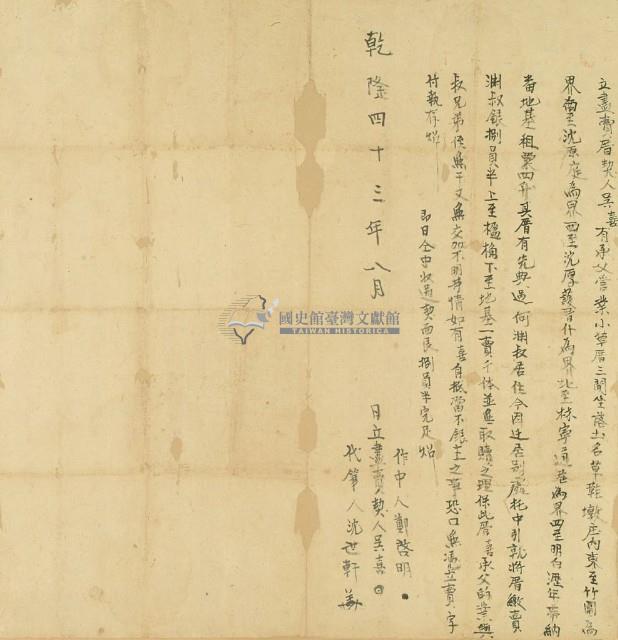 立盡賣厝契人吳喜有承父嘗業小草厝三間坐落土名草鞋墩庄內東至竹圍為
界南至沈原庭為界西至沈厚護厝什為界北至林寧道巷為界四至明白遞年帶納
番地基租粟四升其厝有先典過何淵叔居住今因迁居別處托中引就將厝繳賣
淵叔銀捌員半上至楹桷下至地基一賣千休並無取贖之理保此厝喜承父的業與
叔兄弟侄無干又無交加不明等情如有喜自抵當不銀主之事恐口無憑立賣字
付執存炤
即日仝中收過契面艮捌員半完足炤
乾隆四十三年八月 日立盡賣契人吳喜
作中人鄭啓明
代筆人沈世軒
國史館臺灣文獻館
TAIWAN HISTORICA